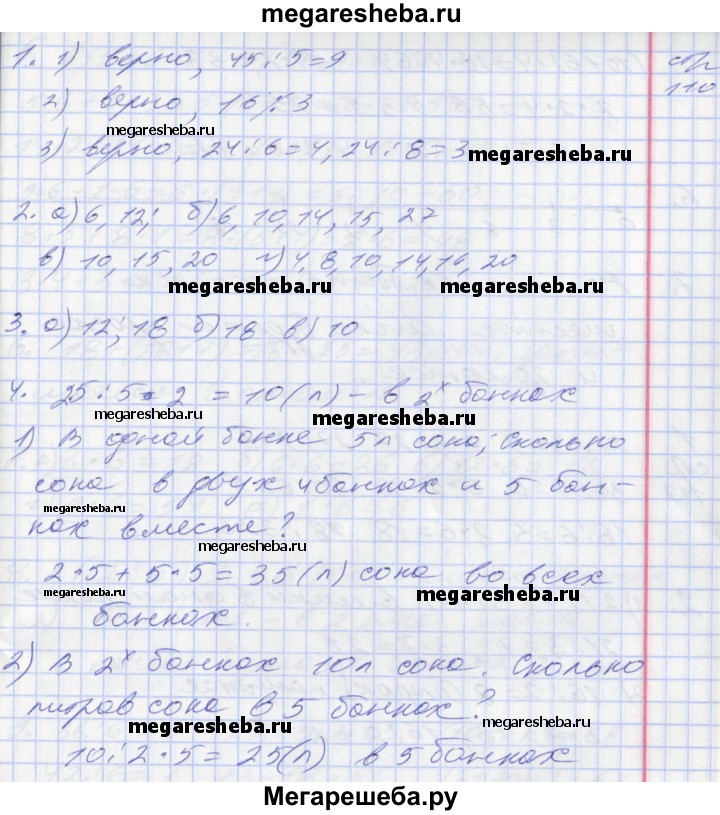 megaresheba.ru
1. 1) верно, 45:5=9 стр
2) верно, 16 ⁒ 3 110
megaresheba.ru
3) верно, 24:6=4, 24:8=3
megaresheba.ru
2. а) 6, 12; б) 6, 10, 14, 15, 27
в) 10, 15, 20 г) 4, 8, 10, 14, 16, 20
megaresheba.ru megaresheba.ru
3. а) 12; 18 б) 18 в) 10
4. 25:5·2 = 10(л) - в 2х банках
megaresheba.ru megaresheba.ru
1) В одной банке 5л сока; Сколько
сока в двух банках и 5 бан-
megaresheba.ru
ках вместе?
megaresheba.ru
2·5+5·5=35(л) сока во всех
megaresheba.ru
банках.
2) В 2х банках 10л сока. Сколько
литров сока в 5 банках?
megaresheba.ru megaresheba.ru
10:2·5=25(л) в 5 банках
Мегарешеба.ру